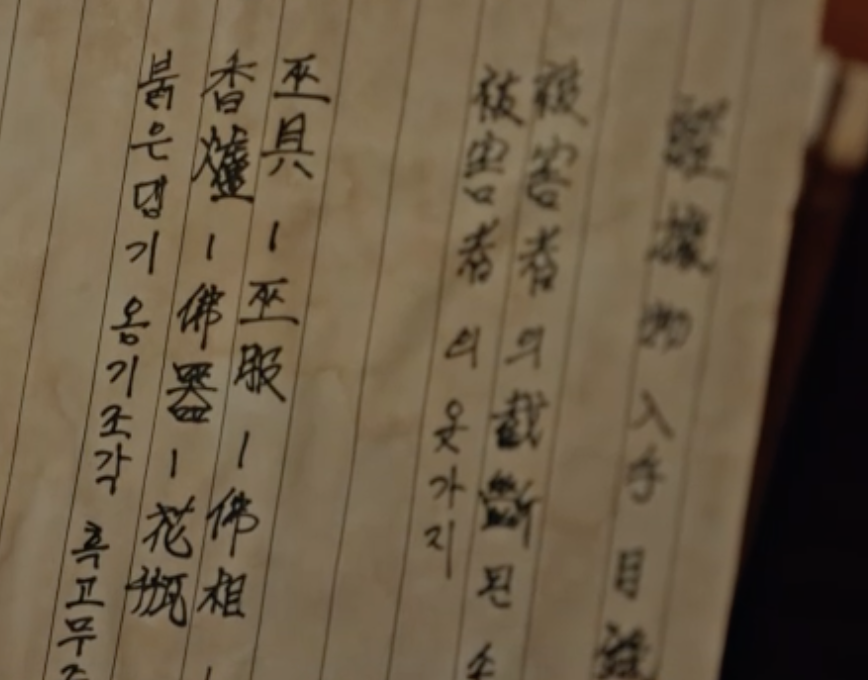 證據物入手目錄
被害者의 截斷된 손
被害者의 옷가지
巫具 - 巫服 - 佛相 -
香爐 - 佛器 - 花瓶
붉은댕기 옹기조각 흑고무